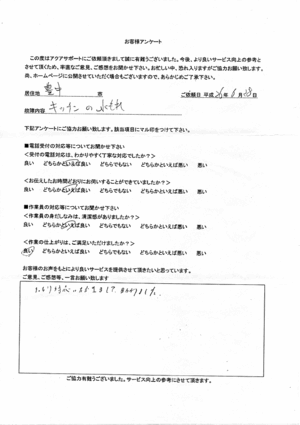 お客様アンケート
この度はアクアサポートにご依頼頂きまして誠に有難うございました。今後、より良いサービス向上の参考と
させて頂くため、率直なご意見、ご感想をお聞かせ下さい。お忙しい中、恐れ入りますがご協力お願い致します。
尚、ホームページに公開させていただく場合もございますので、あらかじめご了承下さい。
居住地 豊中 市 ご依頼日 平成 26年 6月 18日
故障内容 キッチンの水もれ
下記アンケートにご協力お願い致します。該当項目にマル印をつけて下さい。
■電話受付の対応等についてお聞かせ下さい
<受付の電話対応は、わかりやすく丁寧な対応でしたか?>
良い どちらかといえば良い どちらでもない どちらかといえば悪い 悪い
<お伝えしたお時間どおりにお伺いすることができていましたか?>
良い どちらかといえば良い どちらでもない どちらかといえば悪い 悪い
■作業員の対応等についてお聞かせ下さい
<作業員の身だしなみは、清潔感がありましたか?>
良い どちらかといえば良い どちらでもない どちらかといえば悪い 悪い
<作業の仕上がりは、ご満足いただけましたか?>
良い どちらかといえば良い どちらでもない どちらかといえば悪い 悪い
お客様のお声をもとにより良いサービスを提供させて頂きたいと思っています。
ご意見、ご感想等、一言お願い致します
ご協力有難うございました。サービス向上の参考にさせて頂きます。